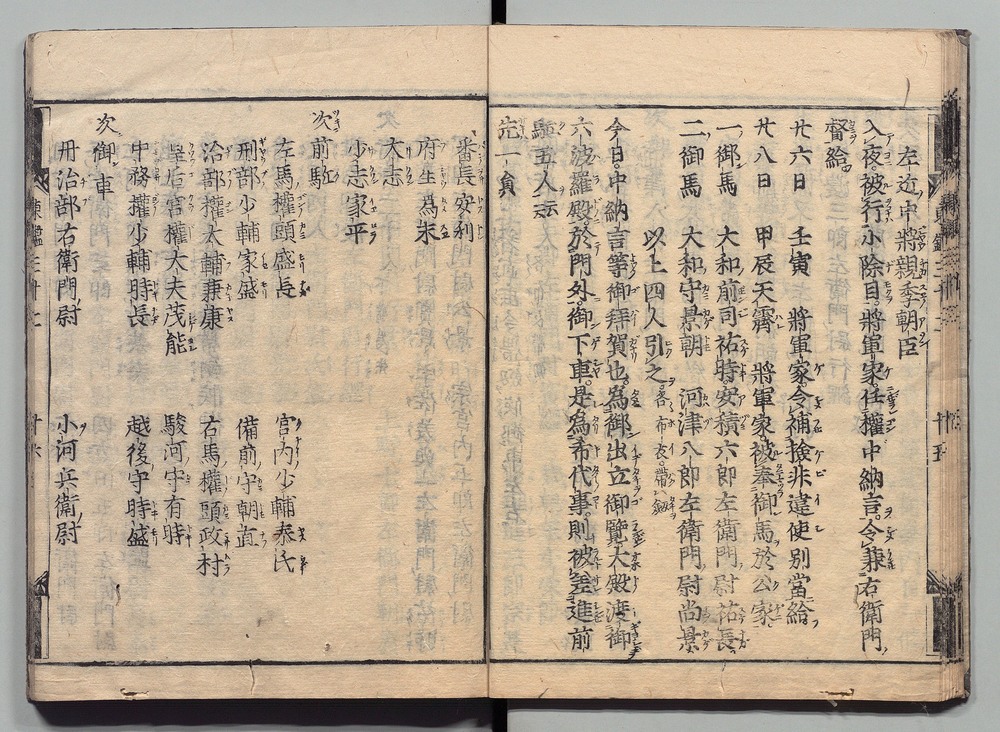 左近中將親季朝臣
入夜被行小除目。將軍家任權中納言。令兼右衛門
督給。
廿六日　壬寅　將軍家令補撿非違使別當給
廿八日　甲辰天霽　將軍家被奉御馬於公家
一御馬　大和前司祐時　安積六郎左衛門尉祐長
二御馬　大和守景朝　河津八郎左衛門尉尚景
以上四人引之。各布衣。帶劔
今日。中納言等御拜賀也。為御出立御覽大殿渡御
六波羅殿。於門外。御下車。是為希代事。則被差進前
駈五人云云
先一員
番長安利
府生為末
大志
少志家平
次前駈
左馬權頭盛長　宮内少輔泰氏
刑部少輔家盛　備前守朝直
治部權大輔兼康　右馬權頭政村
皇后宮權大夫茂能　駿河守有時
中務權少輔時長　越後守時盛
次御車
冊治部右衛門尉　小河兵衛尉